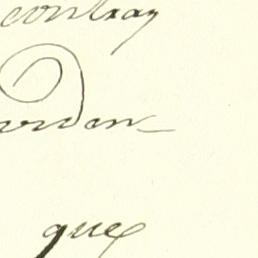 contray
erdan_
que